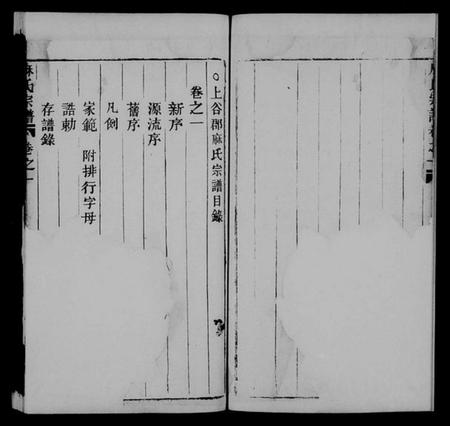 麻氏宗譜 卷之一
〇上谷郡麻氏宗譜目錄
卷之一
新序
源流序
舊序
凡例
家範 附排行字母
誥勅
存譜錄
麻氏宗譜 卷之一